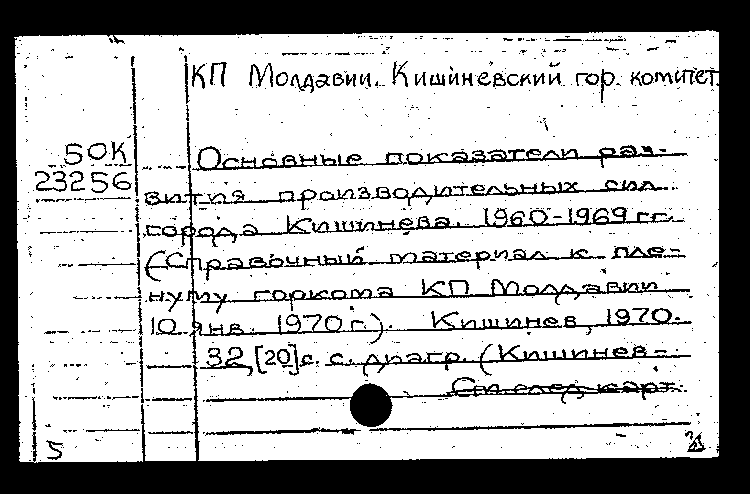 КП Молдавии. Кишиневский гор. комитет.
50К
23256
Основные показатели раз-
вития производительных сил
города Кишинева. 1960-1969 гг.
(Справочный материал к пле-
нуму горкома КП Молдавии
10 янв. 1970 г.). Кишинев, 1970.
32, [20] с. с. диагр. (Кишинев-
См. след. карт.
5